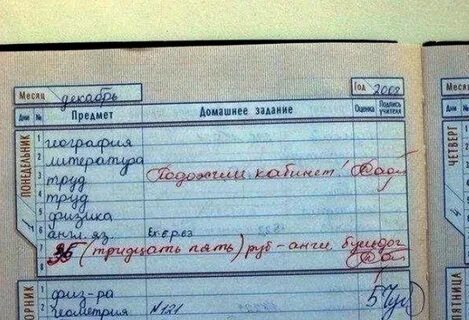 Месяц декабрь Год 2008
Дни № Предмет Домашнее задание Оценка Подпись учителя
ПОНЕДЕЛЬНИК
1 география
2 литература
3 труд Подожгли кабинет!
4 труд
5 физика
6 англ. яз. Ex. 6, p. 23
7 35 (тридцать пять) руб - англ. бульдог
8
ВТОРНИК
1 физ-ра
2 геометрия №121 5
Дни №
ЧЕТВЕРГ
1
2
3
4
5
6
7
8
ПЯТНИЦА
1
2